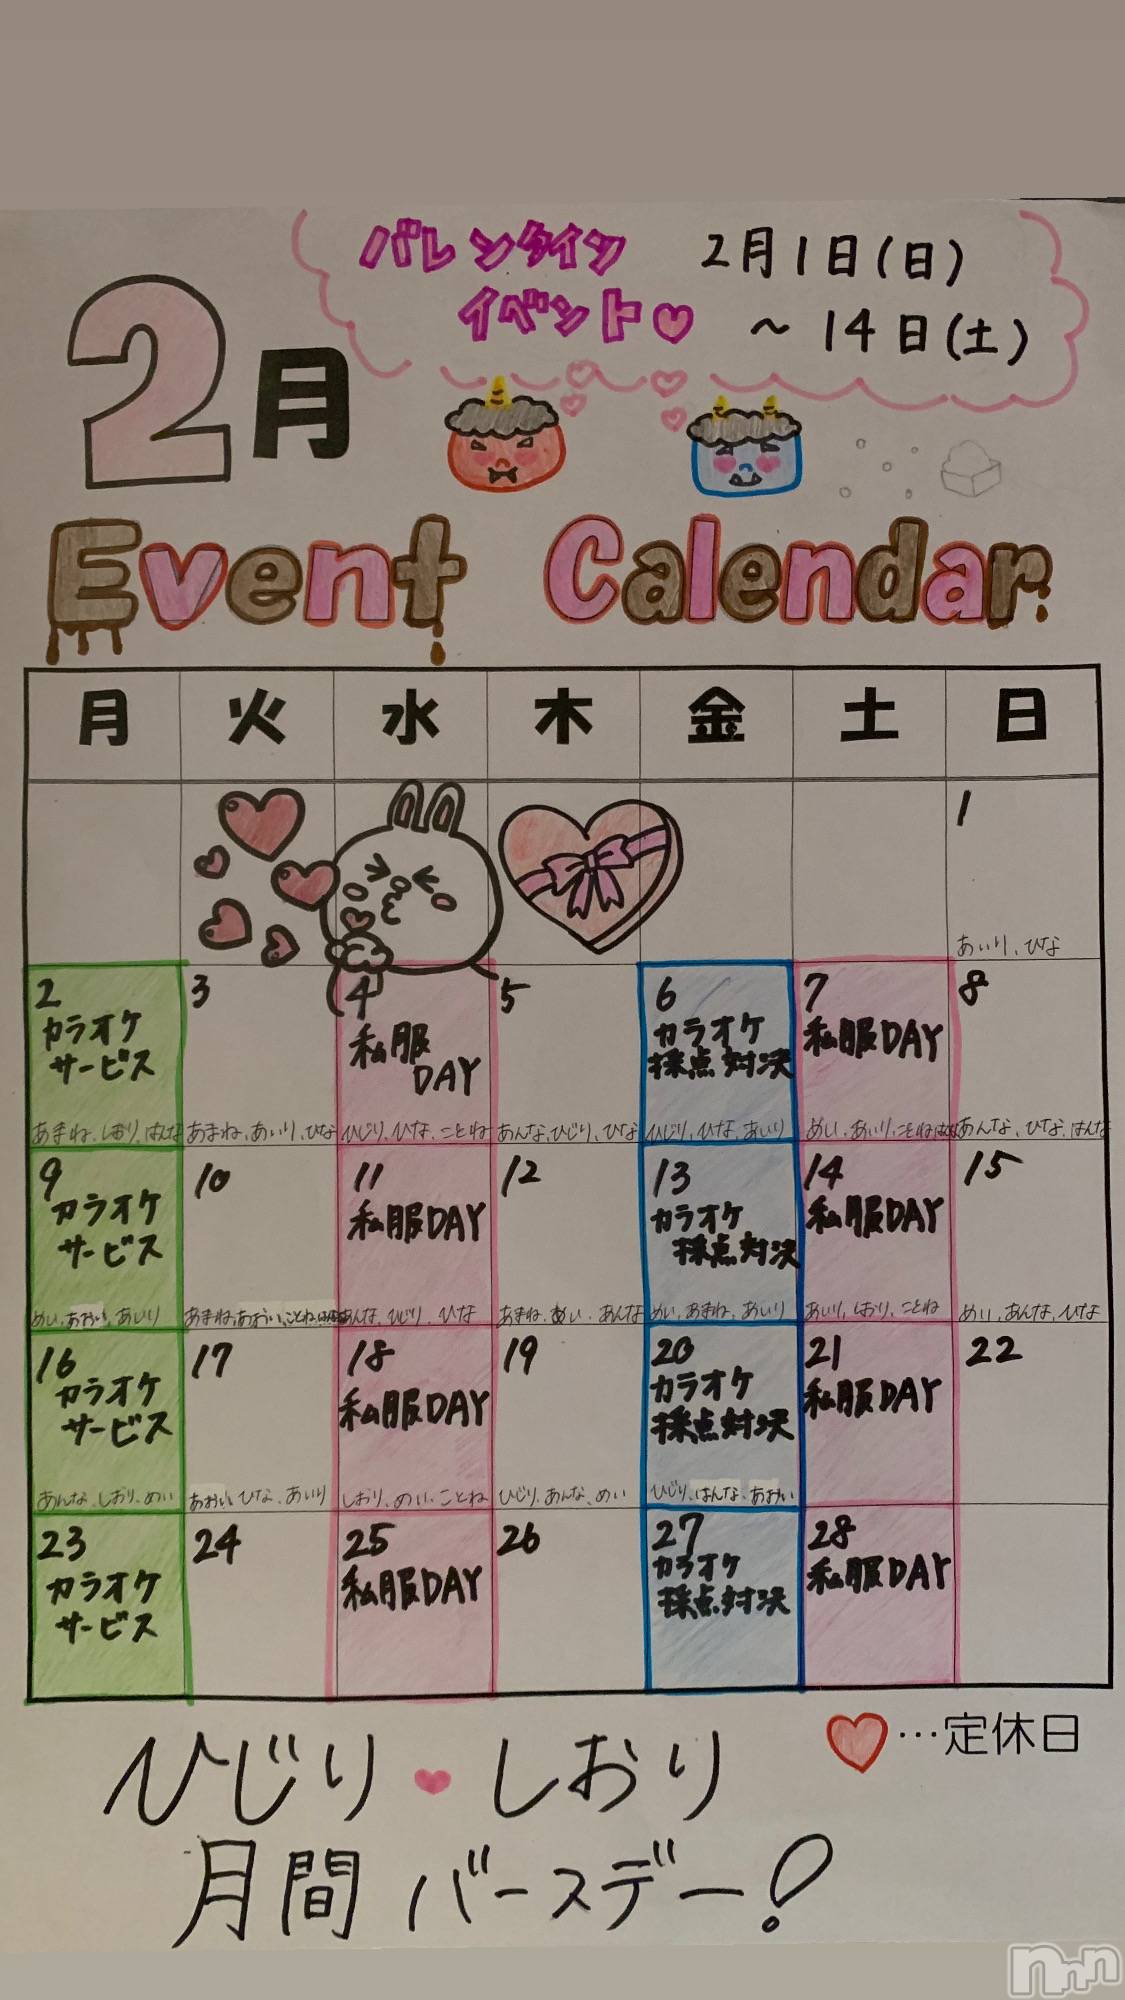 バレンタイン 2月1日(日)
イベント♡ ～14日(土)
2月
Event Calendar
月 火 水 木 金 土 日
1
あいり、ひな
2 3 4 5 6 7 8
カラオケ
サービス
私服
DAY
カラオケ
採点対決
私服DAY
あまね、しおり、はんな
あまね、あいり、ひな
ひじり、ひな、ことね
あんな、ひじり、ひな
ひじり、ひな、あいり
めい、あいり、ことね
あんな、ひな、はんな
9 10 11 12 13 14 15
カラオケ
サービス
私服DAY
カラオケ
採点対決
私服DAY
めい、あおい、あいり
あまね、あおい、ことね
あんな、ひじり、ひな
あまね、めい、あんな
めい、あまね、あいり
あいり、しおり、ことね
めい、あんな、ひな
16 17 18 19 20 21 22
カラオケ
サービス
私服DAY
カラオケ
採点対決
私服DAY
あんな、しおり、めい
あおい、ひな、あいり
しおり、めい、ことね
ひじり、あんな、めい
ひじり、はんな、あおい
23 24 25 26 27 28
カラオケ
サービス
私服DAY
カラオケ
採点対決
私服DAY
♡…定休日
ひじり♥しおり
月間バースデー!
nnn